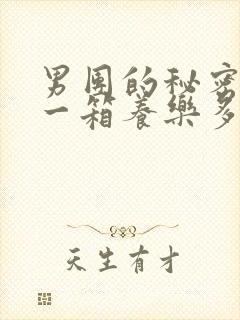 男团的秘密
一箱养樂多
天生有才